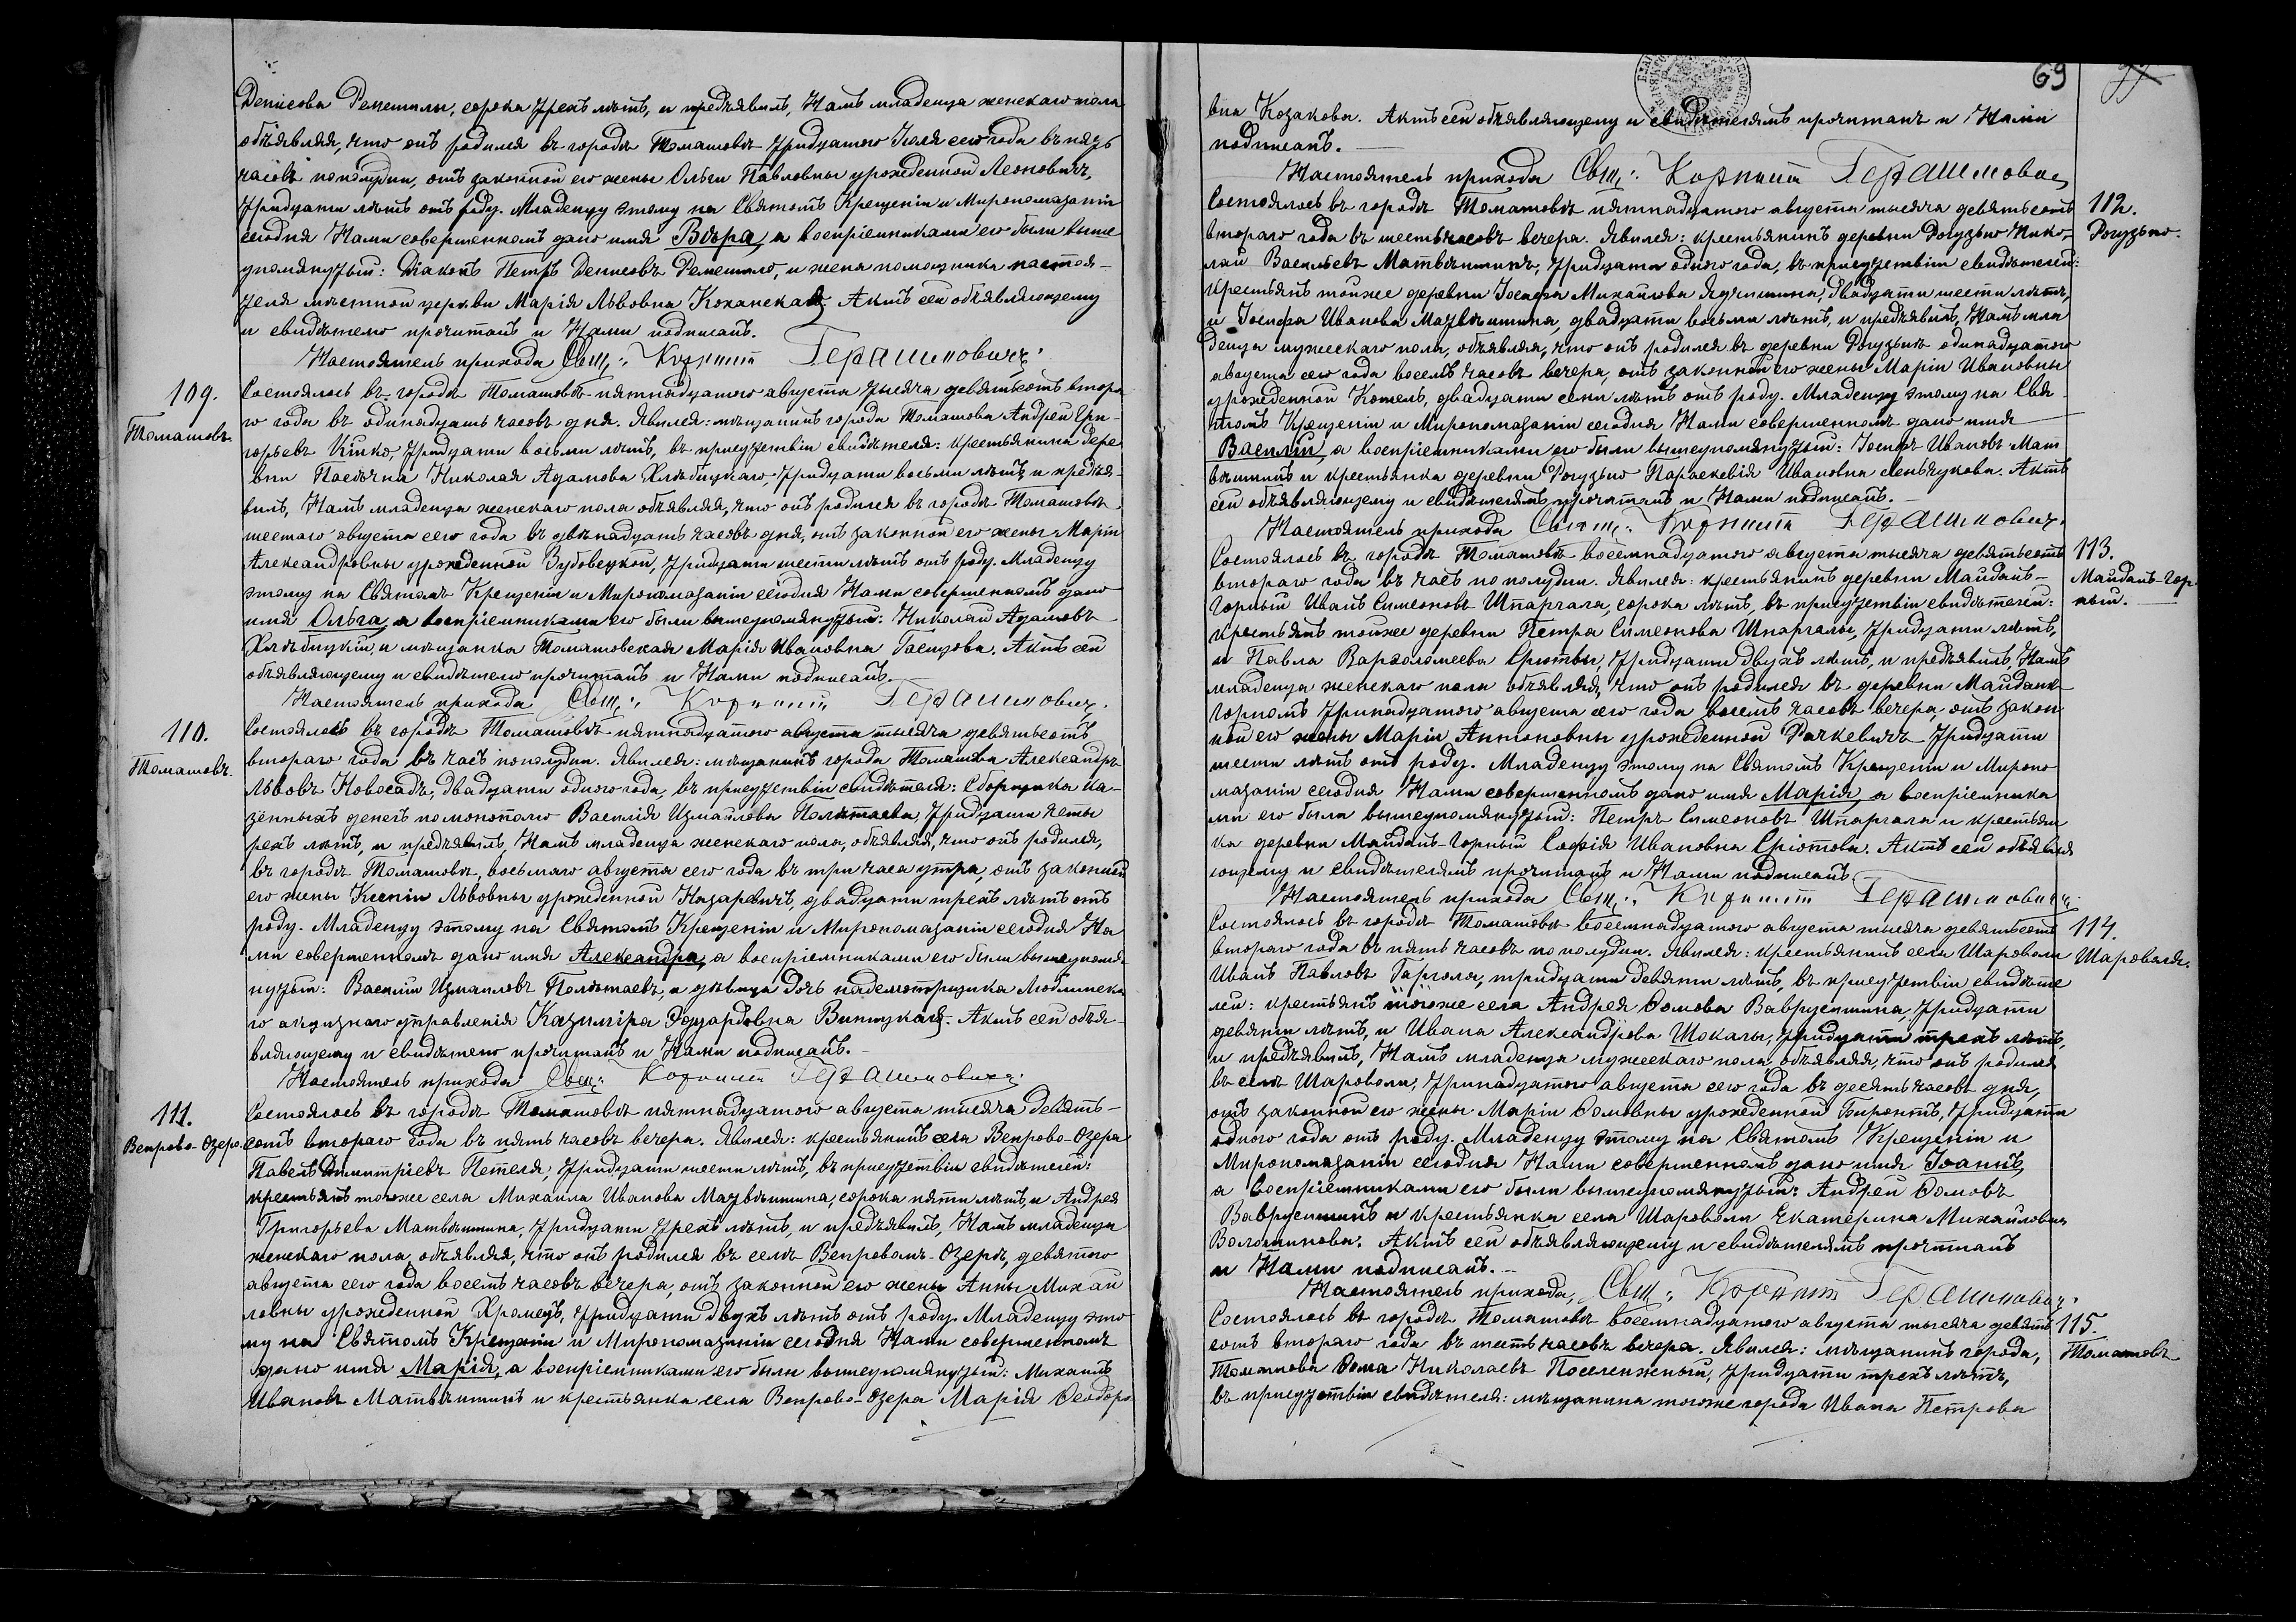 Денисова Ремешилы, сорока трехъ лѣтъ, и предъявилъ Намъ младенца женскаго пола
объявляя, что онъ родился въ городѣ Томашовѣ тридцатого Іюля сего года въ пять
часовъ пополудни, отъ законной его жены Ольги Павловны урожденной Леоновичъ,
тридцати лѣтъ отъ роду. Младенцу этому на Святомъ Крещеніи и Миропомазаніи
сегодня Нами совершенномъ дано имя Вѣра, а воспріемниками его были выше
упомянутый: Діаконъ Петръ Денисовъ Ремешило, и жена помощника настоя-
теля мѣстной церкви Марія Львовна Коханская. Актъ сей объявляющему
и свидѣтелю прочитанъ и Нами подписанъ.
Настоятель прихода Свящ: Корнилій Герашимовичъ.
109.
Томашовъ.
Состоялось въ городѣ Томашовѣ пятнадцатого августа тысяча девятьсотъ второ
го года въ одинадцать часовъ дня. Явился: мѣщанинъ города Томашова Андрей Гри-
горьевъ Кицко, тридцати восьми лѣтъ, въ присутствіи свидѣтеля: крестьянина дере
вни Пасѣчна Николая Адамова Хлѣбицкаго, тридцати восьми лѣтъ, и предъя-
вилъ Намъ младенца женскаго пола объявляя, что онъ родился въ городѣ Томашовѣ
шестаго августа сего года въ двѣнадцать часовъ дня, отъ законной его жены Маріи
Александровны урожденной Зубовецкой, тридцати шести лѣтъ отъ роду. Младенцу
этому на Святомъ Крещеніи и Миропомазаніи сегодня Нами совершенномъ дано
имя Ольга, а воспріемниками его были вышеупомянутый: Николай Адамовъ
Хлѣбицкій, и мѣщанка Томашовская Марія Ивановна Гасюкова. Актъ сей
объявляющему и свидѣтелю прочитанъ и Нами подписанъ.
Настоятель прихода Свящ: Корнилій Герашимовичъ.
110.
Томашовъ.
Состоялось въ городѣ Томашовѣ пятнадцатого августа тысяча девятьсотъ
второго года въ часъ пополудни. Явился: мѣщанинъ города Томашова Александръ
Львовъ Новосадъ, двадцати одного года, въ присутствіи свидѣтеля: Сборщика ка-
зенныхъ денегъ по монополіи Василія Измайлова Полѣтаева, тридцати четы
рехъ лѣтъ, и предъявилъ Намъ младенца женскаго пола, объявляя, что онъ родился,
въ городѣ Томашовѣ, восьмого августа сего года въ три часа утра, отъ законной
его жены Ксеніи Львовны урожденной Назаревичъ, двадцати трехъ лѣтъ отъ
роду. Младенцу этому на Святомъ Крещеніи и Миропомазаніи сегодня На
ми совершенномъ дано имя Александра, а воспріемниками его были вышеупомя-
нутый: Василій Измайловъ Полѣтаевъ, и дѣвица дочь надсмотрщика Люблинска
го акцизнаго управленія Казиміра Эдуардовна Виницкая. Актъ сей объя-
вляющему и свидѣтелю прочитанъ и Нами подписанъ.
Настоятель прихода Свящ: Корнилій Герашимовичъ.
111.
Вепрово-Озеро.
Состоялось въ городѣ Томашовѣ пятнадцатого августа тысяча девять-
сотъ второго года въ пять часовъ вечера. Явился: крестьянинъ села Вепрово-Озера
Павелъ Димитріевъ Петеля, тридцати шести лѣтъ, въ присутствіи свидѣтелей:
крестьянъ тогоже села Михаила Иванова Матвѣишина, сорока пяти лѣтъ, и Андрея
Григорьева Матвѣишина, тридцати трехъ лѣтъ, и предъявилъ Намъ младенца
женскаго пола, объявляя, что онъ родился въ селѣ Вепровомъ-Озерѣ, девятого
августа сего года восемь часовъ вечера, отъ законной его жены Анны Михай
ловны урожденной Хромецъ, тридцати двухъ лѣтъ отъ роду. Младенцу это
му на Святомъ Крещеніи и Миропомазаніи сегодня Нами совершенномъ
дано имя Марія, а воспріемниками его были вышеупомянутый: Михаилъ
Ивановъ Матвѣишинъ и крестьянка села Вепрово-Озера Марія Ѳеодоро
69
вна Козакова. Актъ сей объявляющему и свидѣтелямъ прочитанъ и Нами
подписанъ.
Настоятель прихода Свящ: Корнилій Герашимовичъ
112.
Рогузьно.
Состоялось въ городѣ Томашовѣ пятнадцатого августа тысяча девятьсотъ
второго года въ шесть часовъ вечера. Явился: крестьянинъ деревни Рогузьно Нико-
лай Васильевъ Матвѣишинъ, тридцати одного года, въ присутствіи свидѣтелей:
крестьянъ тойже деревни Іосифа Михайлова Ячишина, двадцати шести лѣтъ,
и Іосифа Иванова Матвѣишина, двадцати восьми лѣтъ, и предъявилъ Намъ мла
денца мужескаго пола, объявляя, что онъ родился въ деревни Рогузьнѣ одинадцатого
августа сего года восемь часовъ вечера, отъ законной его жены Маріи Ивановны
урожденной Котель, двадцати семи лѣтъ отъ роду. Младенцу этому на Свя-
томъ Крещеніи и Миропомазаніи сегодня Нами совершенномъ дано имя
Василій, а воспріемниками его были вышеупомянутый: Іосифъ Ивановъ Мат
вѣишинъ и крестьянка деревни Рогузьно Параскевія Ивановна Сеньчукова. Актъ
сей объявляющему и свидѣтелямъ прочитанъ и Нами подписанъ.
Настоятель прихода Свящ: Корнилій Герашимовичъ.
113.
Майданъ-Гор
ный.
Состоялось въ городѣ Томашовѣ восемнадцатого августа тысяча девятьсотъ
второго года въ часъ пополудни. Явился: крестьянинъ деревни Майданъ-
Горный Иванъ Симеоновъ Шпаргала, сорока лѣтъ, въ присутствіи свидѣтелей:
крестьянъ тойже деревни Петра Симеонова Шпаргалы, тридцати лѣтъ,
и Павла Варѳоломеева Срютвы, тридцати двухъ лѣтъ, и предъявилъ Намъ
младенца женскаго пола объявляя, что онъ родился въ деревни Майданѣ-
Горномъ тринадцатого августа сего года восемь часовъ вечера отъ закон
ной его жены Маріи Антоновны урожденной Рачкевичъ тридцати
шести лѣтъ отъ роду. Младенцу этому на Святомъ Крещеніи и Миропо
мазаніи сегодня Нами совершенномъ дано имя Марія, а воспріемника
ми его были вышеупомянутый: Петръ Симеоновъ Шпаргала и крестьян
ка деревни Майданъ-Горный Софія Ивановна Срютова. Актъ сей объявля
ющему и свидѣтелямъ прочитанъ и Нами подписанъ.
Настоятель прихода Свящ: Корнилій Герашимовичъ.
114.
Шароволя.
Состоялось въ городѣ Томашовѣ восемнадцатого августа тысяча девятьсотъ
второго года въ пять часовъ пополудни. Явился: крестьянинъ села Шароволи
Иванъ Павловъ Гаргола, тридцати девяти лѣтъ, въ присутствіи свидѣте
лей: крестьянъ тогоже села Андрея Ѳомова Ваврусишина, тридцати
девяти лѣтъ, и Ивана Александрова Шокалы, тридцати трехъ лѣтъ,
и предъявилъ Намъ младенца мужескаго пола, объявляя, что онъ родился
въ селѣ Шароволи, тринадцатого августа сего года въ десять часовъ дня,
отъ законной его жены Маріи Ѳомовны урожденной Биронтъ, тридцати
одного года отъ роду. Младенцу этому на Святомъ Крещеніи и
Миропомазаніи сегодня Нами совершенномъ дано имя Іоаннъ,
а воспріемниками его были вышеупомянутый: Андрей Ѳомовъ
Ваврусишинъ и крестьянка села Шароволи Екатерина Михайловна
Волошинова. Актъ сей объявляющему и свидѣтелямъ прочитанъ
и Нами подписанъ.
Настоятель прихода, Свящ: Корнилій Герашимовичъ.
115.
Томашовъ
Состоялось въ городѣ Томашовѣ восемнадцатого августа тысяча девять
сотъ второго года въ шесть часовъ вечера. Явился: мѣщанинъ города,
Томашова Ѳома Николаевъ Поселенжный, тридцати трехъ лѣтъ,
въ присутствіи свидѣтеля: мѣщанина тогоже города Ивана Петрова